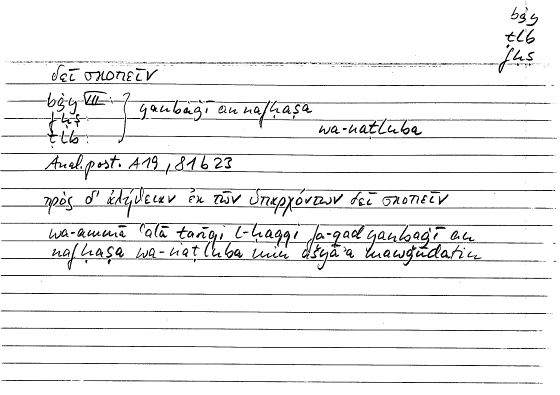 bġy
ṭlb
fḥṣ
δεῖ σκοπεῖν
bġy VII:
fḥṣ:
ṭlb:
yanbaġī an nafḥaṣa
wa-naṭluba
Anal. post. A19, 81b23
πρὸς δ' ἀλήθειαν ἐκ τῶν ὑπαρχόντων δεῖ σκοπεῖν
wa-ammā ʿalā ṭarīqi l-ḥaqqi fa-qad yanbaġī an
nafḥaṣa wa-naṭluba min ašyāʾa mawǧūdatin